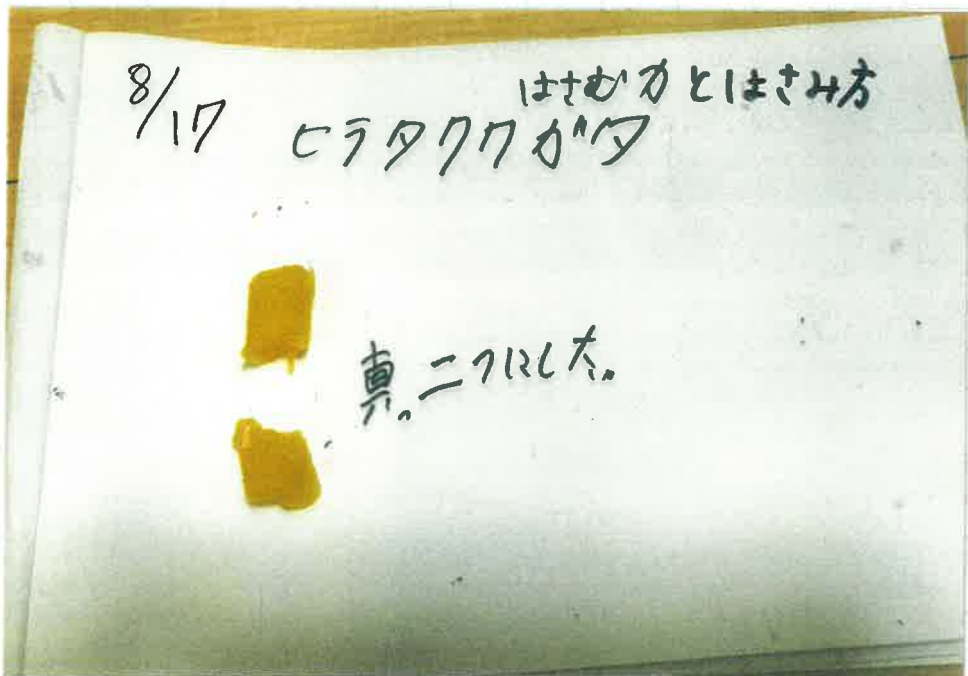 8/17
はさむ力とはさみ方
ヒラタクワガタ
真っ二つにした。